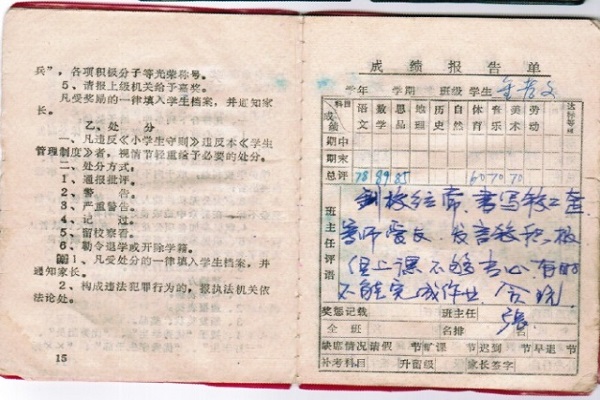 兵”,各项积极分子等光荣称号。
5、请报上级机关给予嘉奖。
凡受奖励的一律填入学生档案,并通知家
长。
乙、处 分
一、凡违反《小学生守则》违反本《学生
管理制度》者,视情节轻重给予必要的处分。
二、处分方式:
1、通报批评。
2、警 告。
3、严重警告。
4、记 过。
5、留校察看。
6、勒令退学或开除学籍。
1、凡受处分的一律填入学生档案,并
通知家长。
2、构成违法犯罪行为的,报执法机关依
法论处。
15
成绩报告单
学年 学期 班级 学生
科目 语文 数学 思品 地理 历史 自然 体育 音乐 美术 劳动 达标等级
成绩
期中
期末
总评 78 89 85 60 70 70
班主任评语
到校经常,书写较工整
尊师爱友,发言较积极
但上课不够专心有时
不能完成作业。
奖惩记载 班主任 张
全 班 名排 名
缺席情况请假 节旷课 节迟到 节早退 节
补考科目 升留级 家长签字